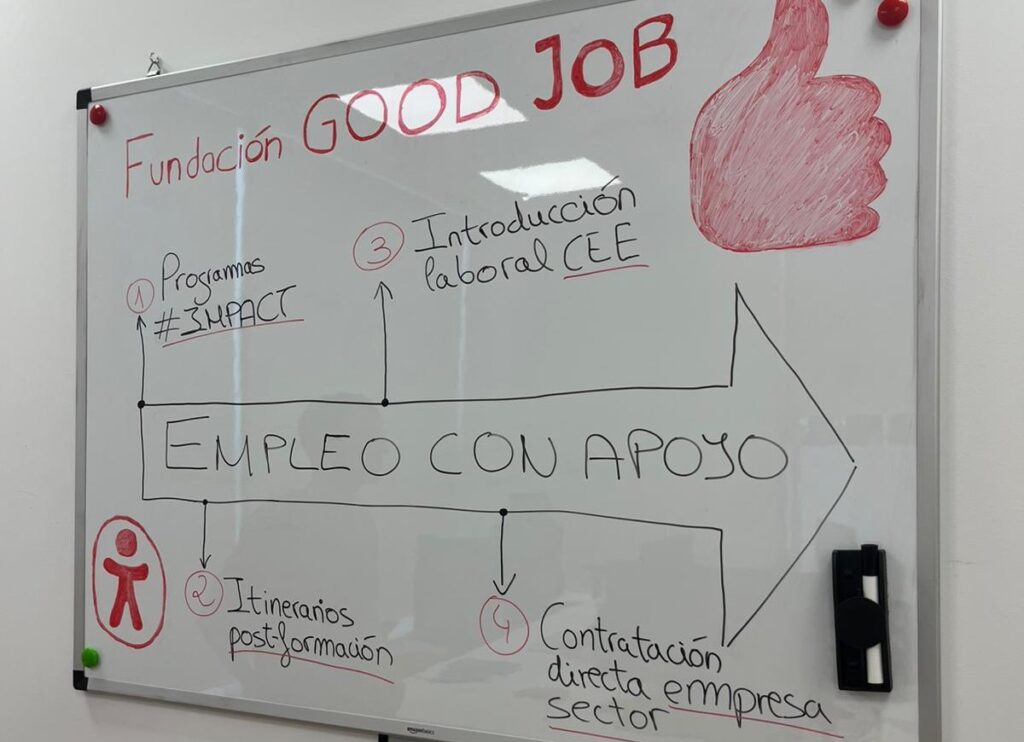 Fundación GOOD JOB
1 Programas
#IMPACT
3 Introducción
laboral CEE
EMPLEO CON APOYO
2 Itinerarios
post-formación
4 Contratación
directa empresa
sector
amazonbasics